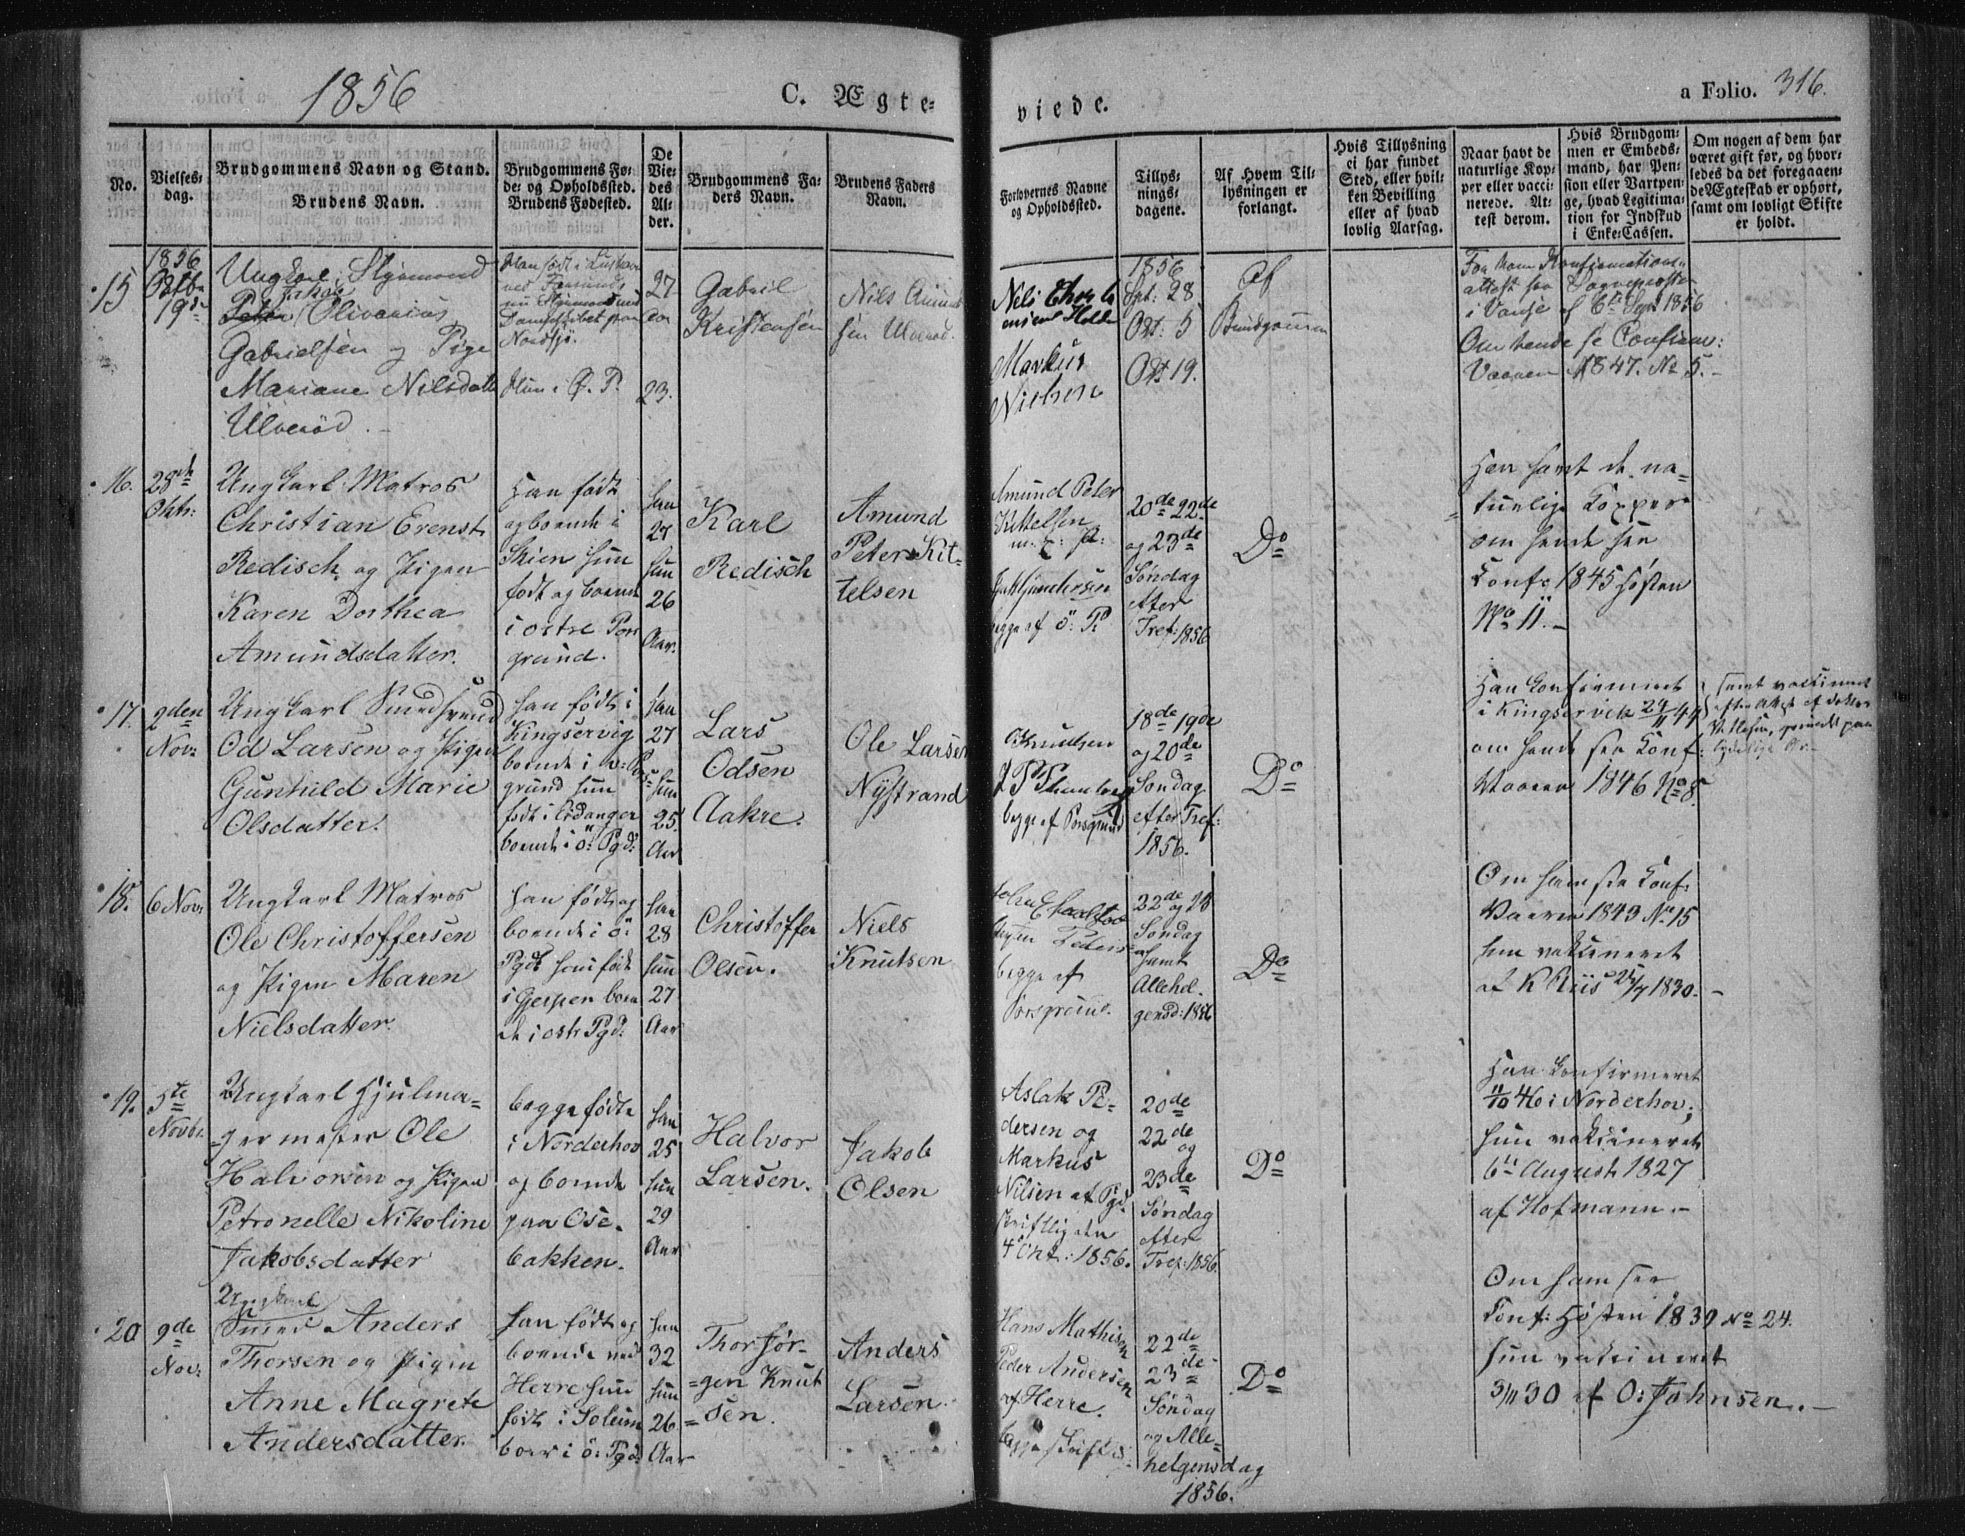 1856
C. Ægte-
viede.
a Folio. 316.
No.
Vielses-
dag.
Brudgommens Navn og Stand.
Brudens Navn.
Brudgommens Fø-
de- og Opholdssted.
Brudens Fødested.
De
Vie-
des
Al-
der.
Brudgommens Fa-
ders Navn.
Brudens Faders
Navn.
Forlovernes Navne
og Opholdssted.
Tillys-
nings-
dagene.
Af Hvem Til-
lysningen er
forlangt.
Hvis Tillysning
ei har fundet
Sted, eller hvil-
ken Bevilling
eller af hvad
lovlig Aarsag.
Naar havt de
naturlige Kop-
per eller vacci-
nerede. At-
test derom.
Hvis Brudgom-
men er Embeds-
mand, har Pen-
sion eller Vartpen-
ge, hvad Legitima-
tion for Indskud
i Enke-Cassen.
Om nogen af dem har
været gift før, og hvor-
ledes da det foregaaen-
de Ægteskab er ophørt,
samt om lovligt Skifte
er holdt.
15
1856
Octbr
19de
Ungkarl Styrmand
Olivarius
Gabrielsen og Pige
Mariane Nilsdatt
Ulverød.
Hun i Ø. P.
27
23.
Gabriel
Kristensen
Nils
sen Ulverød.
Markus
Nielsen
1856
Spt: 28
Oct: 5
Oct 19.
Af
Brudgommen
For ham Konfirmations-
attest fra
i Vanse af 6te Sept 1856
Om hende se Confirm:
Vaaren 1847. No 5.-
16.
28de
Oktr:
Ungkarl Matros
Christian Erenst
Redisch og Pigen
Karen Dorthea
Amundsdatter.
Han født
og boende i
Skien hun
født og boende
i østre Pors
grund.
han
27
hun
26
Aar.
Karl
Redisch
Amund
Peter Kit-
telsen
Amund Peter
Kittelsen
begge af ö: P:
20de 22de
og 23de
Søndag
efter
Tref: 1856
Do
Han havt de na-
turlige Kopper
om hende see
Conf: 1845 Høsten
No 11.-
17.
2den
Nov:
Ungkarl Smedsvend
Od Larsen og Pigen
Gunhild Marie
Olsdatter.
han født i
Kingservig
boende i v: Pors
grund hun
født i Eidanger
boende i ö: Pgd:
han
27
hun
25.
Aar
Lars
Odsen
Aakre.
Ole Larsen
Nÿstrand
Knudsen
begge af Porsgrund
18de 19de
og 20de
Søndag
efter Tref:
1856.
Do
Han Confirmeret
i Kingservik 24/11 44
om hende see Conf:
Vaaren 1846 No 8.
samt vakcineret
18.
6 Nov:
Ungkarl Matros
Ole Christoffersen
og Pigen Maren
Nielsdatter.
han født og
boende i ö:
Pgd: hun født
i Gjerpen boen
de i østr Pgd:
han
28
hun
27
Aar
Christoffer
Olsen.
Niels
Knutsen
begge af
Porsgrund.
22de og 23
Søndag
samt
Allehel-
gensd: 1856
Do
Om ham see Conf:
Vaaren 1843 No 15
hun vakcineret
af K Riis 25/7 1830.-
19.
5te
Novbr.
Ungkarl Hjulma-
germester Ole
Halvorsen og Pigen
Petronelle Nikoline
Jakobsdatter
begge fødte
i Norderhov
og boende
paa Ose-
bakken.
han
25
hun
29
Aar
Halvor
Larsen.
Jakob
Olsen
Aslak Pe-
dersen og
Markus
Nilsen af Pgd:
skriftlig den
4 Okt: 1856.
20de
22de
og
23de
Søndag
efter
Tref: 1856.
Do
Han Confirmeret
11/10 46 i Norderhov;
hun vakcineret
6te August 1827
af Hofmann.-
20
9de
Nov:
Ungkarl
Smed Anders
Thorsen og Pigen
Anne Magrete
Andersdatter.
han født og
boende ved
Herre hun
født i Soleum
boer i ö: Pgd:
han
32
hun
26
Aar
Thor Jør-
gen Knut
sen.
Anders
Larsen.
Hans Mathisen
Peder Andersen
af Herre.
begge skriftl:
22de
23de
Søndag
og Alle-
helgensdag
1856.
Do
Om ham see
Conf: Høsten 1839 No 24.
hun vakcineret
3/11 30 af O: Johnsen.-